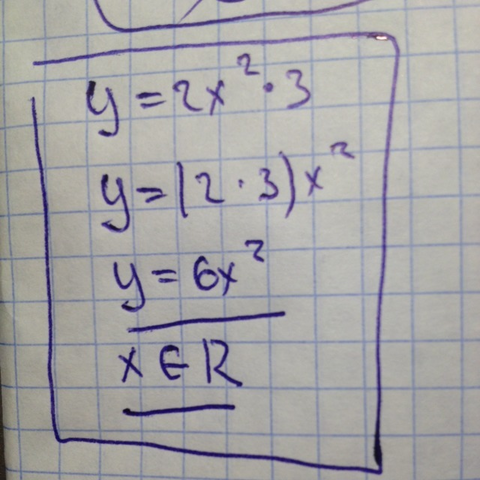 y = 2x² · 3
y = (2 · 3)x²
y = 6x²
x ∈ R